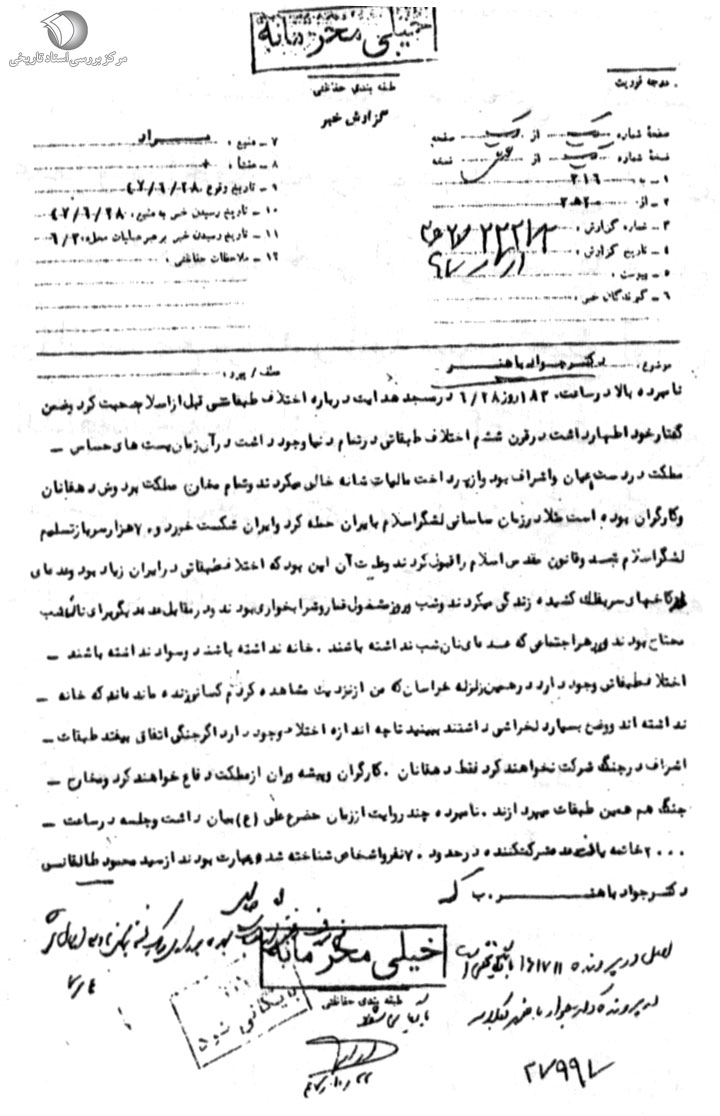 مرکز بررسی اسناد تاریخی
خیلی محرمانه
طبقه بندی حفاظتی
گزارش خبر
درجه فوریت
صفحهٔ شماره یک از یک صفحه
نسخهٔ شماره یک از نسخه
۱ ـ به : ۳۱۶
۲ ـ از :
۳ ـ شماره گزارش :
۴ ـ تاریخ گزارش :
۵ ـ پیوست :
۶ ـ گیرندگان خبر :
۷ ـ منبع :
۸ ـ منشأ :
۹ ـ تاریخ وقوع ۴۷/۶/۲۸
۱۰ ـ تاریخ رسیدن خبر به منبع : ۴۷/۶/۲۸
۱۱ ـ تاریخ رسیدن خبر به رهبر عملیات محل : ۶/۳۰
۱۲ ـ ملاحظات حفاظتی :
موضوع : دکتر جواد باهنر
نامبرده بالا در ساعت ۱۸۳۰ روز ۶/۲۸ در مسجد هدایت درباره اختلاف طبقاتی قبل از اسلام صحبت کرد وضمن
گفتار خود اظهار داشت در قرن ششم اختلاف طبقاتی در تمام دنیا وجود داشت در آن زمان پست های حساس ـ
مملکت در دست اعیان واشراف بود واز پرداخت مالیات شانه خالی میکردند وتمام مخارج مملکت بردوش دهقانان
وکارگران بوده است مثلا در زمان ساسانی لشگر اسلام بایران حمله کرد وایران شکست خورد و ۷۰ هزار سرباز تسلیم
لشگر اسلام شد وقانون مقدس اسلام را قبول کردند وعلت آن این بود که اختلاف طبقاتی در ایران زیاد بود وعده ای
کاخهای سربفلک کشیده زندگی میکردند وشب وروز مشغول قمار وشرابخواری بودند ودر مقابل عده دیگر برای نان شب
محتاج بودند ودر هر اجتماعی که عده ای نان شب نداشته باشند . خانه نداشته باشند وسواد نداشته باشند ـ
اختلاف طبقاتی وجود دارد در همین زلزله خراسان که من از نزدیک مشاهده کردم کسانی زنده مانده اند که خانه ـ
نداشته اند ووضع بسیار دلخراشی داشتند ببینید تا چه اندازه اختلاف وجود دارد اگر جنگی اتفاق بیفتد طبقات ـ
اشراف در جنگ شرکت نخواهند کرد فقط دهقانان . کارگران وپیشه وران از مملکت دفاع خواهند کرد ومخارج ـ
جنگ هم همین طبقات میپردازند . نامبرده چند روایت از زمان حضرت علی (ع) بیان داشت وجلسه در ساعت ـ
۲۰۰۰ خاتمه یافت عده شرکت کننده در حدود ۷۰ نفر واشخاص شناخته شده عبارت بودند از سید محمود طالقانی
دکتر جواد باهنر . ب ک
خیلی محرمانه
طبقه بندی حفاظتی
بایگانی شود
اصل در پرونده
۲۷۹۹۷